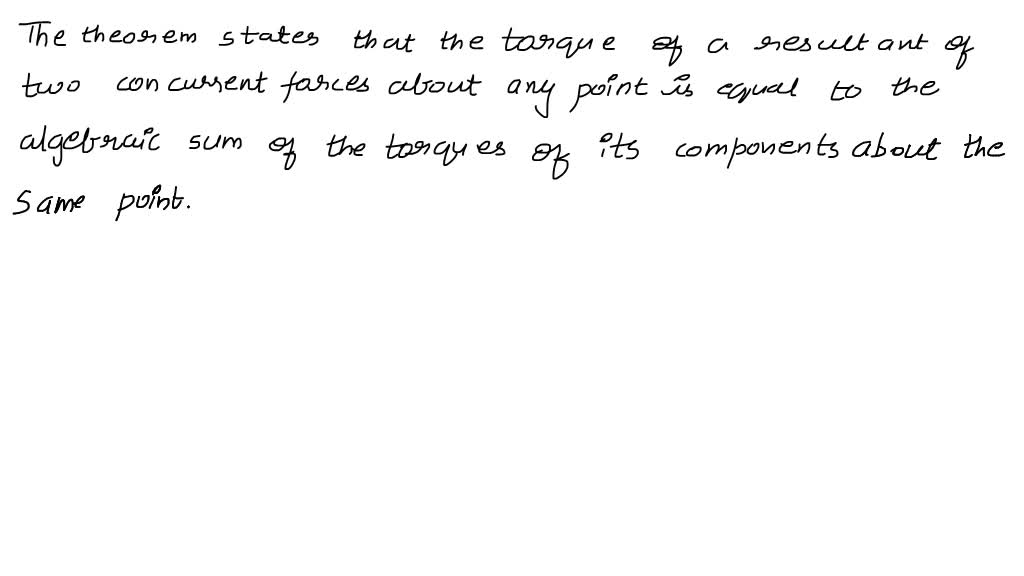 The theorem states that the torque of a resultant of
two concurrent forces about any point is equal to the
algebraic sum of the torques of its components about the
same point.